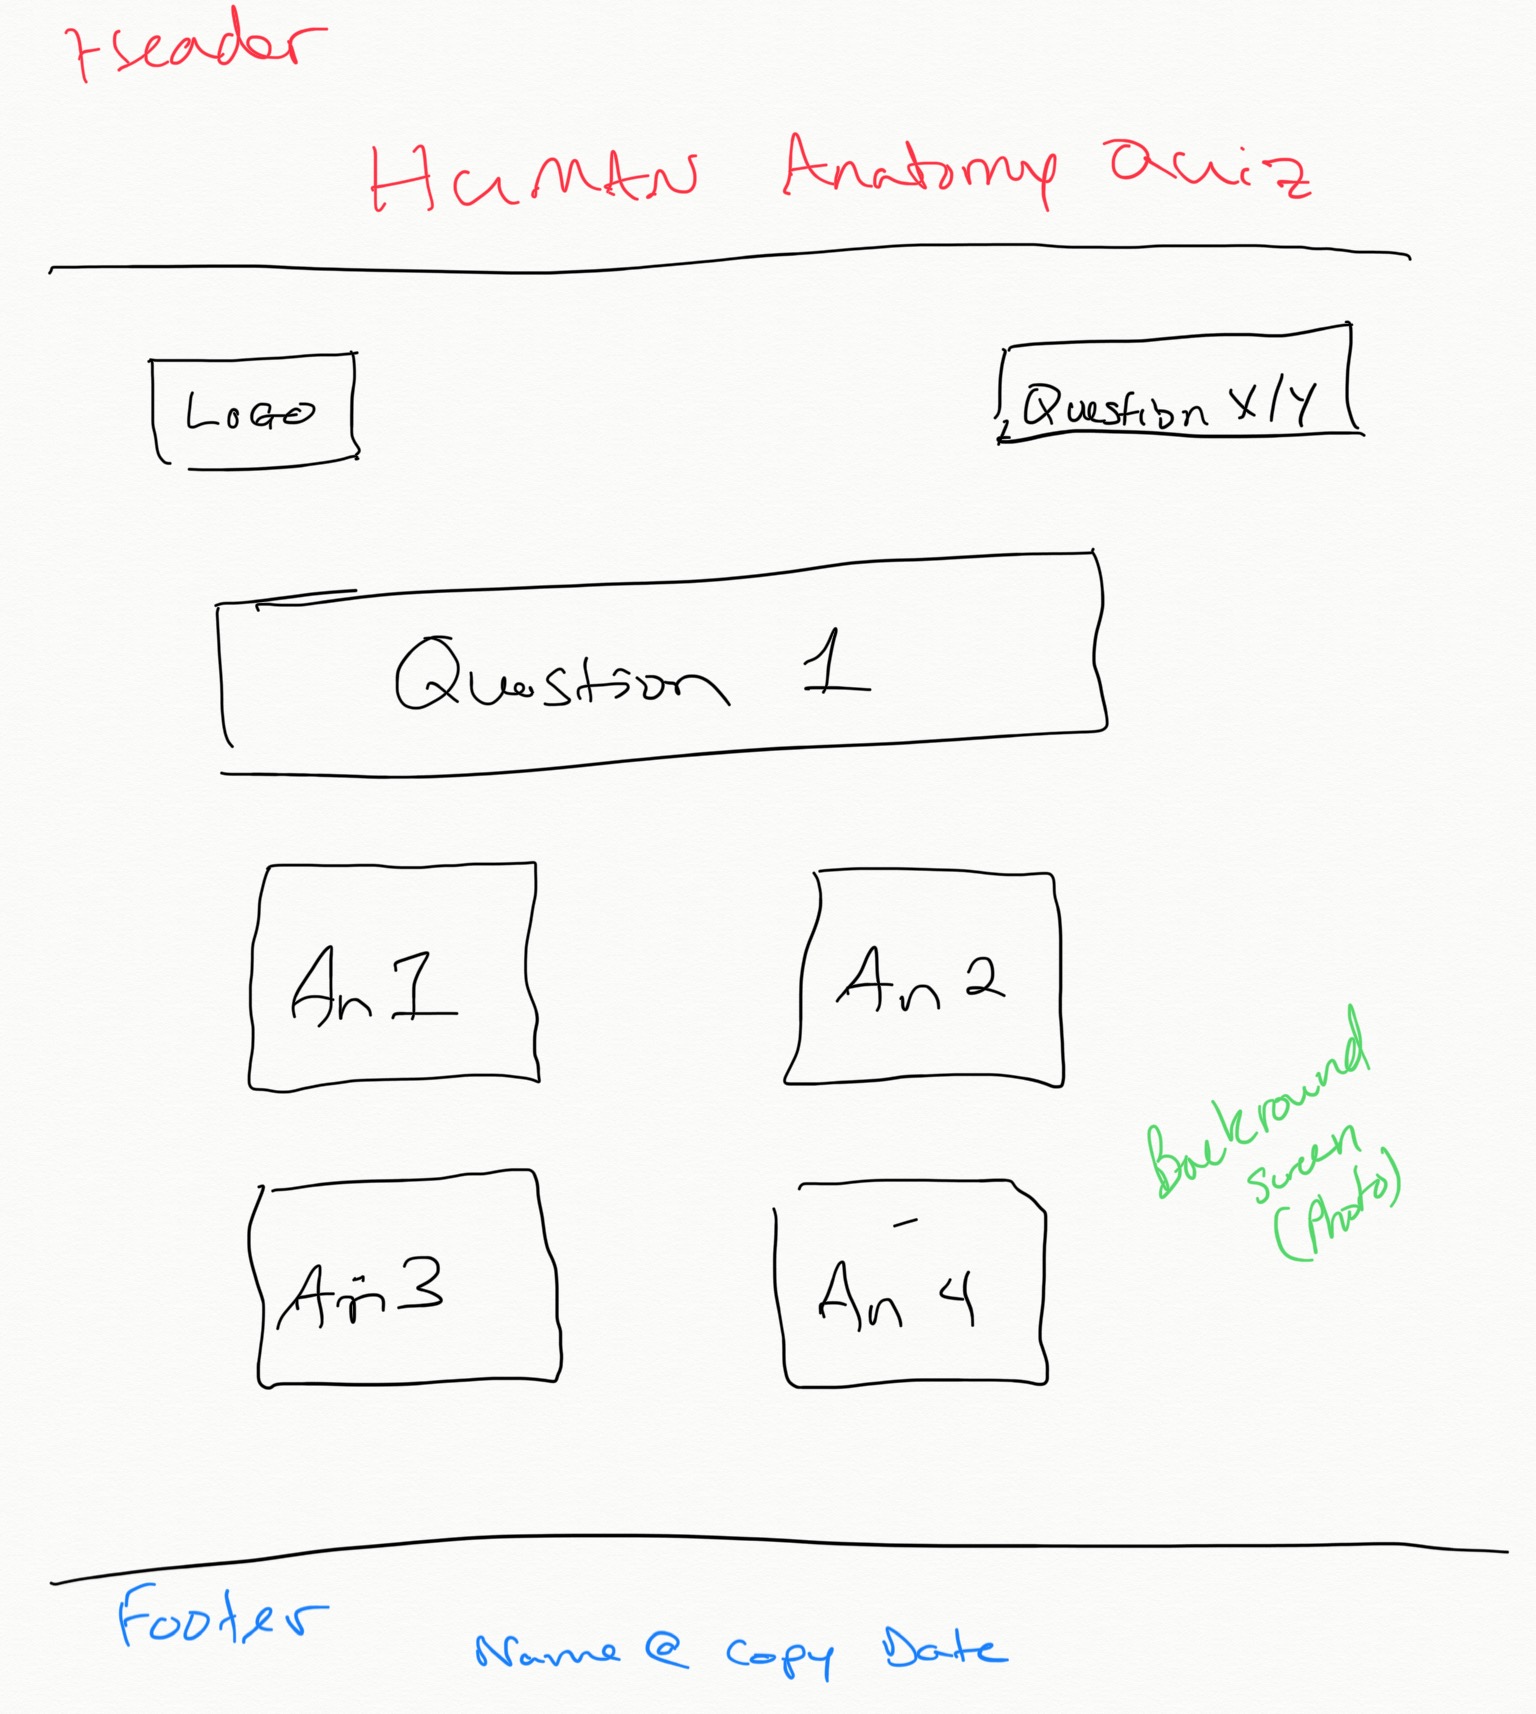 Header
Human Anatomy Quiz
Logo
Question X/Y
Question 1
An 1
An 2
An 3
An 4
Backround
screen
(Photo)
Footer
Name @ copy Date